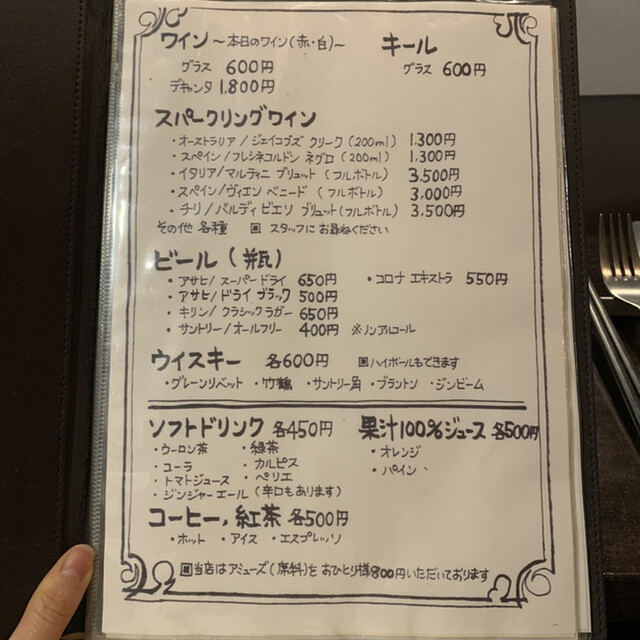 ワイン ～本日のワイン(赤・白)～ キール
グラス 600円 グラス 600円
デキャンタ 1,800円
スパークリングワイン
・オーストラリア/ジェイコブズ クリーク(200ml) 1,300円
・スペイン/フレシネコルドン ネグロ(200ml) 1,300円
・イタリア/マルティニ ブリュット(フルボトル) 3,500円
・スペイン/ヴィエン ベニード(フルボトル) 3,000円
・チリ/バルディビエソ ブリュット(フルボトル) 3,500円
その他 各種 回 スタッフにお尋ねください
ビール(瓶)
・アサヒ/スーパードライ 650円 ・コロナ エキストラ 550円
・アサヒ/ドライ ブラック 500円
・キリン/クラシックラガー 650円
・サントリー/オールフリー 400円 ※ノンアルコール
ウイスキー 各600円 回ハイボールもできます
・グレーンリベット ・竹鶴 ・サントリー角 ・ブラントン ・ジンビーム
ソフトドリンク 各450円 果汁100%ジュース 各500円
・ウーロン茶 ・緑茶 ・オレンジ
・コーラ ・カルピス ・パイン
・トマトジュース ・ペリエ
・ジンジャーエール(辛口もあります)
コーヒー,紅茶 各500円
・ホット ・アイス ・エスプレッソ
回当店はアミューズ(席料)を おひとり様800円いただいております